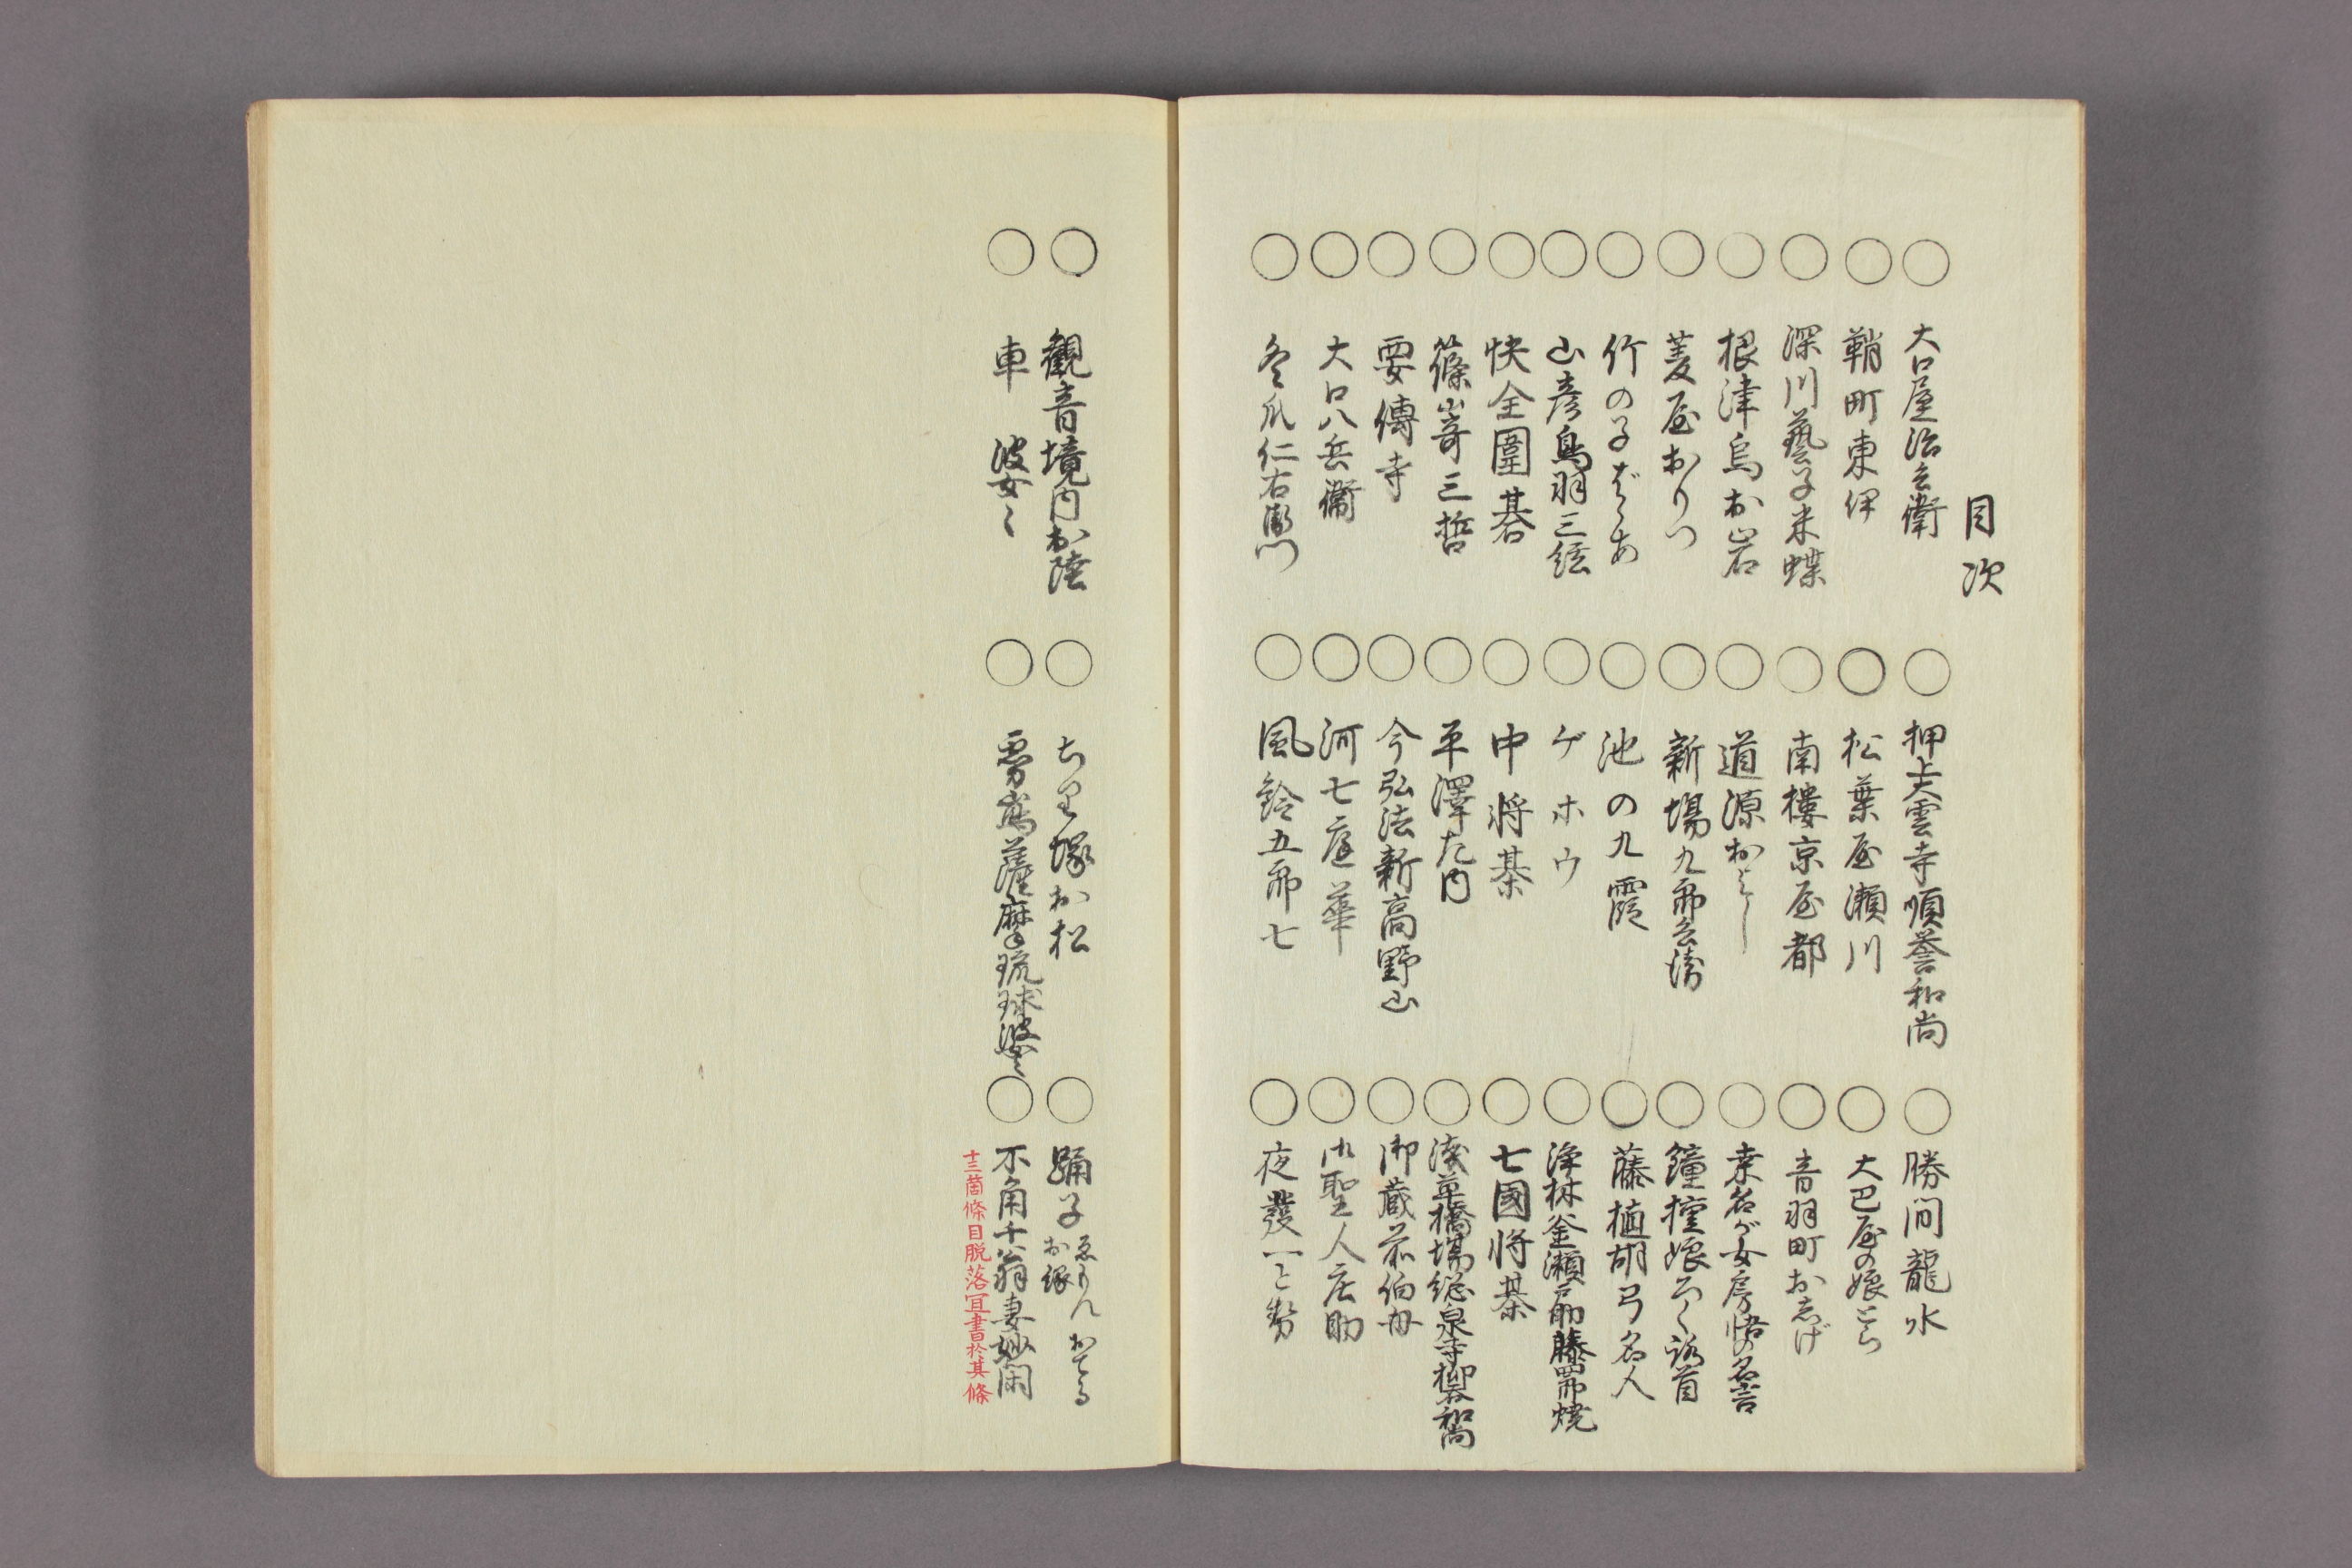 目次
○ 大口屋治兵衛 ○ 押上大雲寺順誉和尚 ○ 勝間龍水
○ 鞘町東伊 ○ 松葉屋瀬川 ○ 大巴屋の娘とら
○ 深川藝子米蝶 ○ 南樓京屋都 ○ 音羽町お志げ
○ 根津烏お岩 ○ 道源おとし ○ 桒名が女房悋名言
○ 菱屋おりつ ○ 新場九郎兵衛 ○ 鐘撞娘ろく首
○ 竹の子ばゞあ ○ 池の九霞 ○ 藤植胡弓名人
○ 山彦鳥羽三絃 ○ ゲホウ ○ 浄林釜瀬戸助藤四郎焼
○ 快全圍碁 ○ 中将棊 ○ 七國将棊
○ 篠嵜三哲 ○ 平澤左内 ○ 浅草橋場総泉寺和尚
○ 要傳寺 ○ 今弘法新高野山 ○ 御蔵前伯母
○ 大口八兵衞 ○ 河七庭華 ○ 聖人庄助
○ 冬爪仁右衛門 ○ 風鈴五郎七 ○ 夜發一と勢
○ 観音境内お陸 ○ ちり塚お松 ○ 踊子ゑもんお縁おてる
○ 車婆々 ○ 薩摩琉球婆々 ○ 不角千翁妻妙閑
十三箇條目脱落冝書於其條